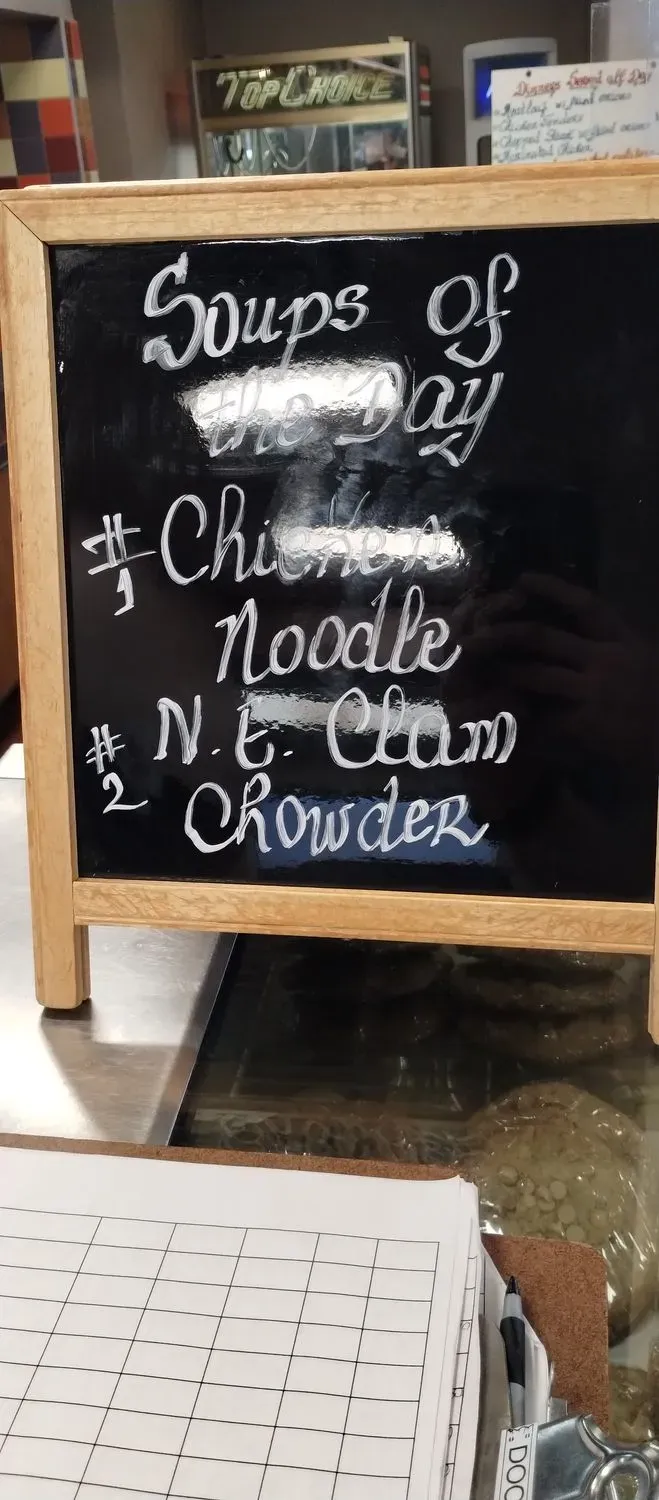 TOP CHOICE
Dinners Served all Day
Chicken Tenders
Soups of
the Day
# 1 Chicken
Noodle
# 2 N.E. Clam
Chowder
DOC